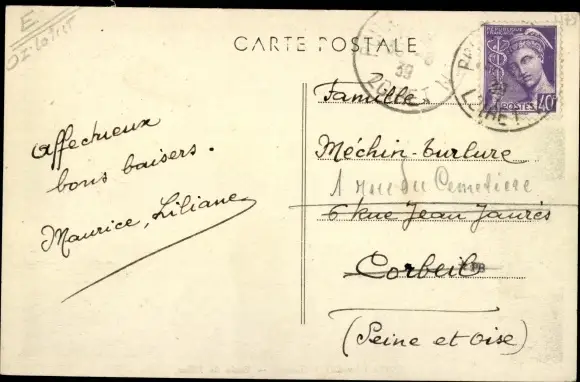 E
CARTE POSTALE
REPUBLIQUE FRANCAISE
POSTES 40c
39
LOIRET
39
LOIRET
Affectueux
bons baisers.
Maurice, Liliane
Famille
Méchin-Turlure
1 rue du Cimetière
6 Rue Jean Jaurès
Corbeil
(Seine et Oise)